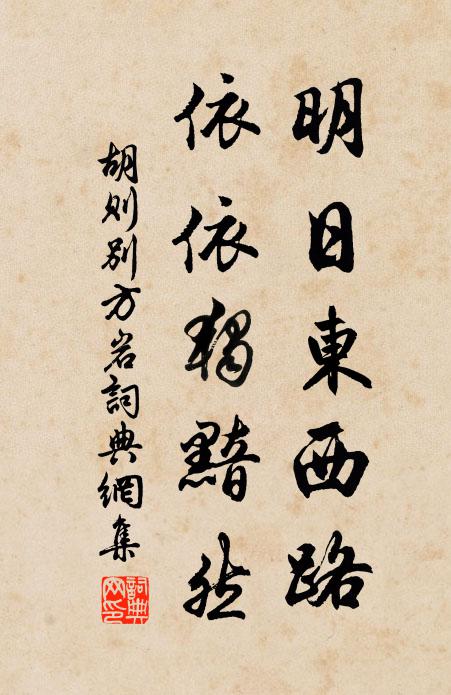 明日東西路
依依獨黯然
胡则别方岩詞典網集
詞典網印